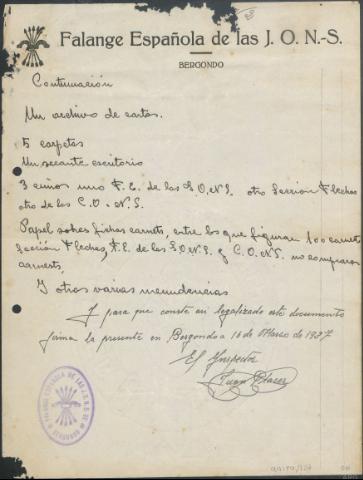 Falange Española de las J. O. N.-S.
BERGONDO
Continuación
Un archivo de cartas.
5 carpetas
Un secante escritorio
3 cuños uno F. E. de las J.O.N.S. otro Seccion Flechas
otro de los C.O.N.S.
Papel sobres fichas carnets, entre los que figuran 100 carnets
Sección Flechas, F.E. de las J.O.N.S. y C.O.N.S. no
carnets,
Y otras varias menudencias
Y para que conste en legalizado este documento
firma la presente en Bergondo a 16 de Marzo de 1937
El Inspector
Juan
FALANGE ESPAÑOLA DE LAS J.O.N.S. DE
BERGONDO